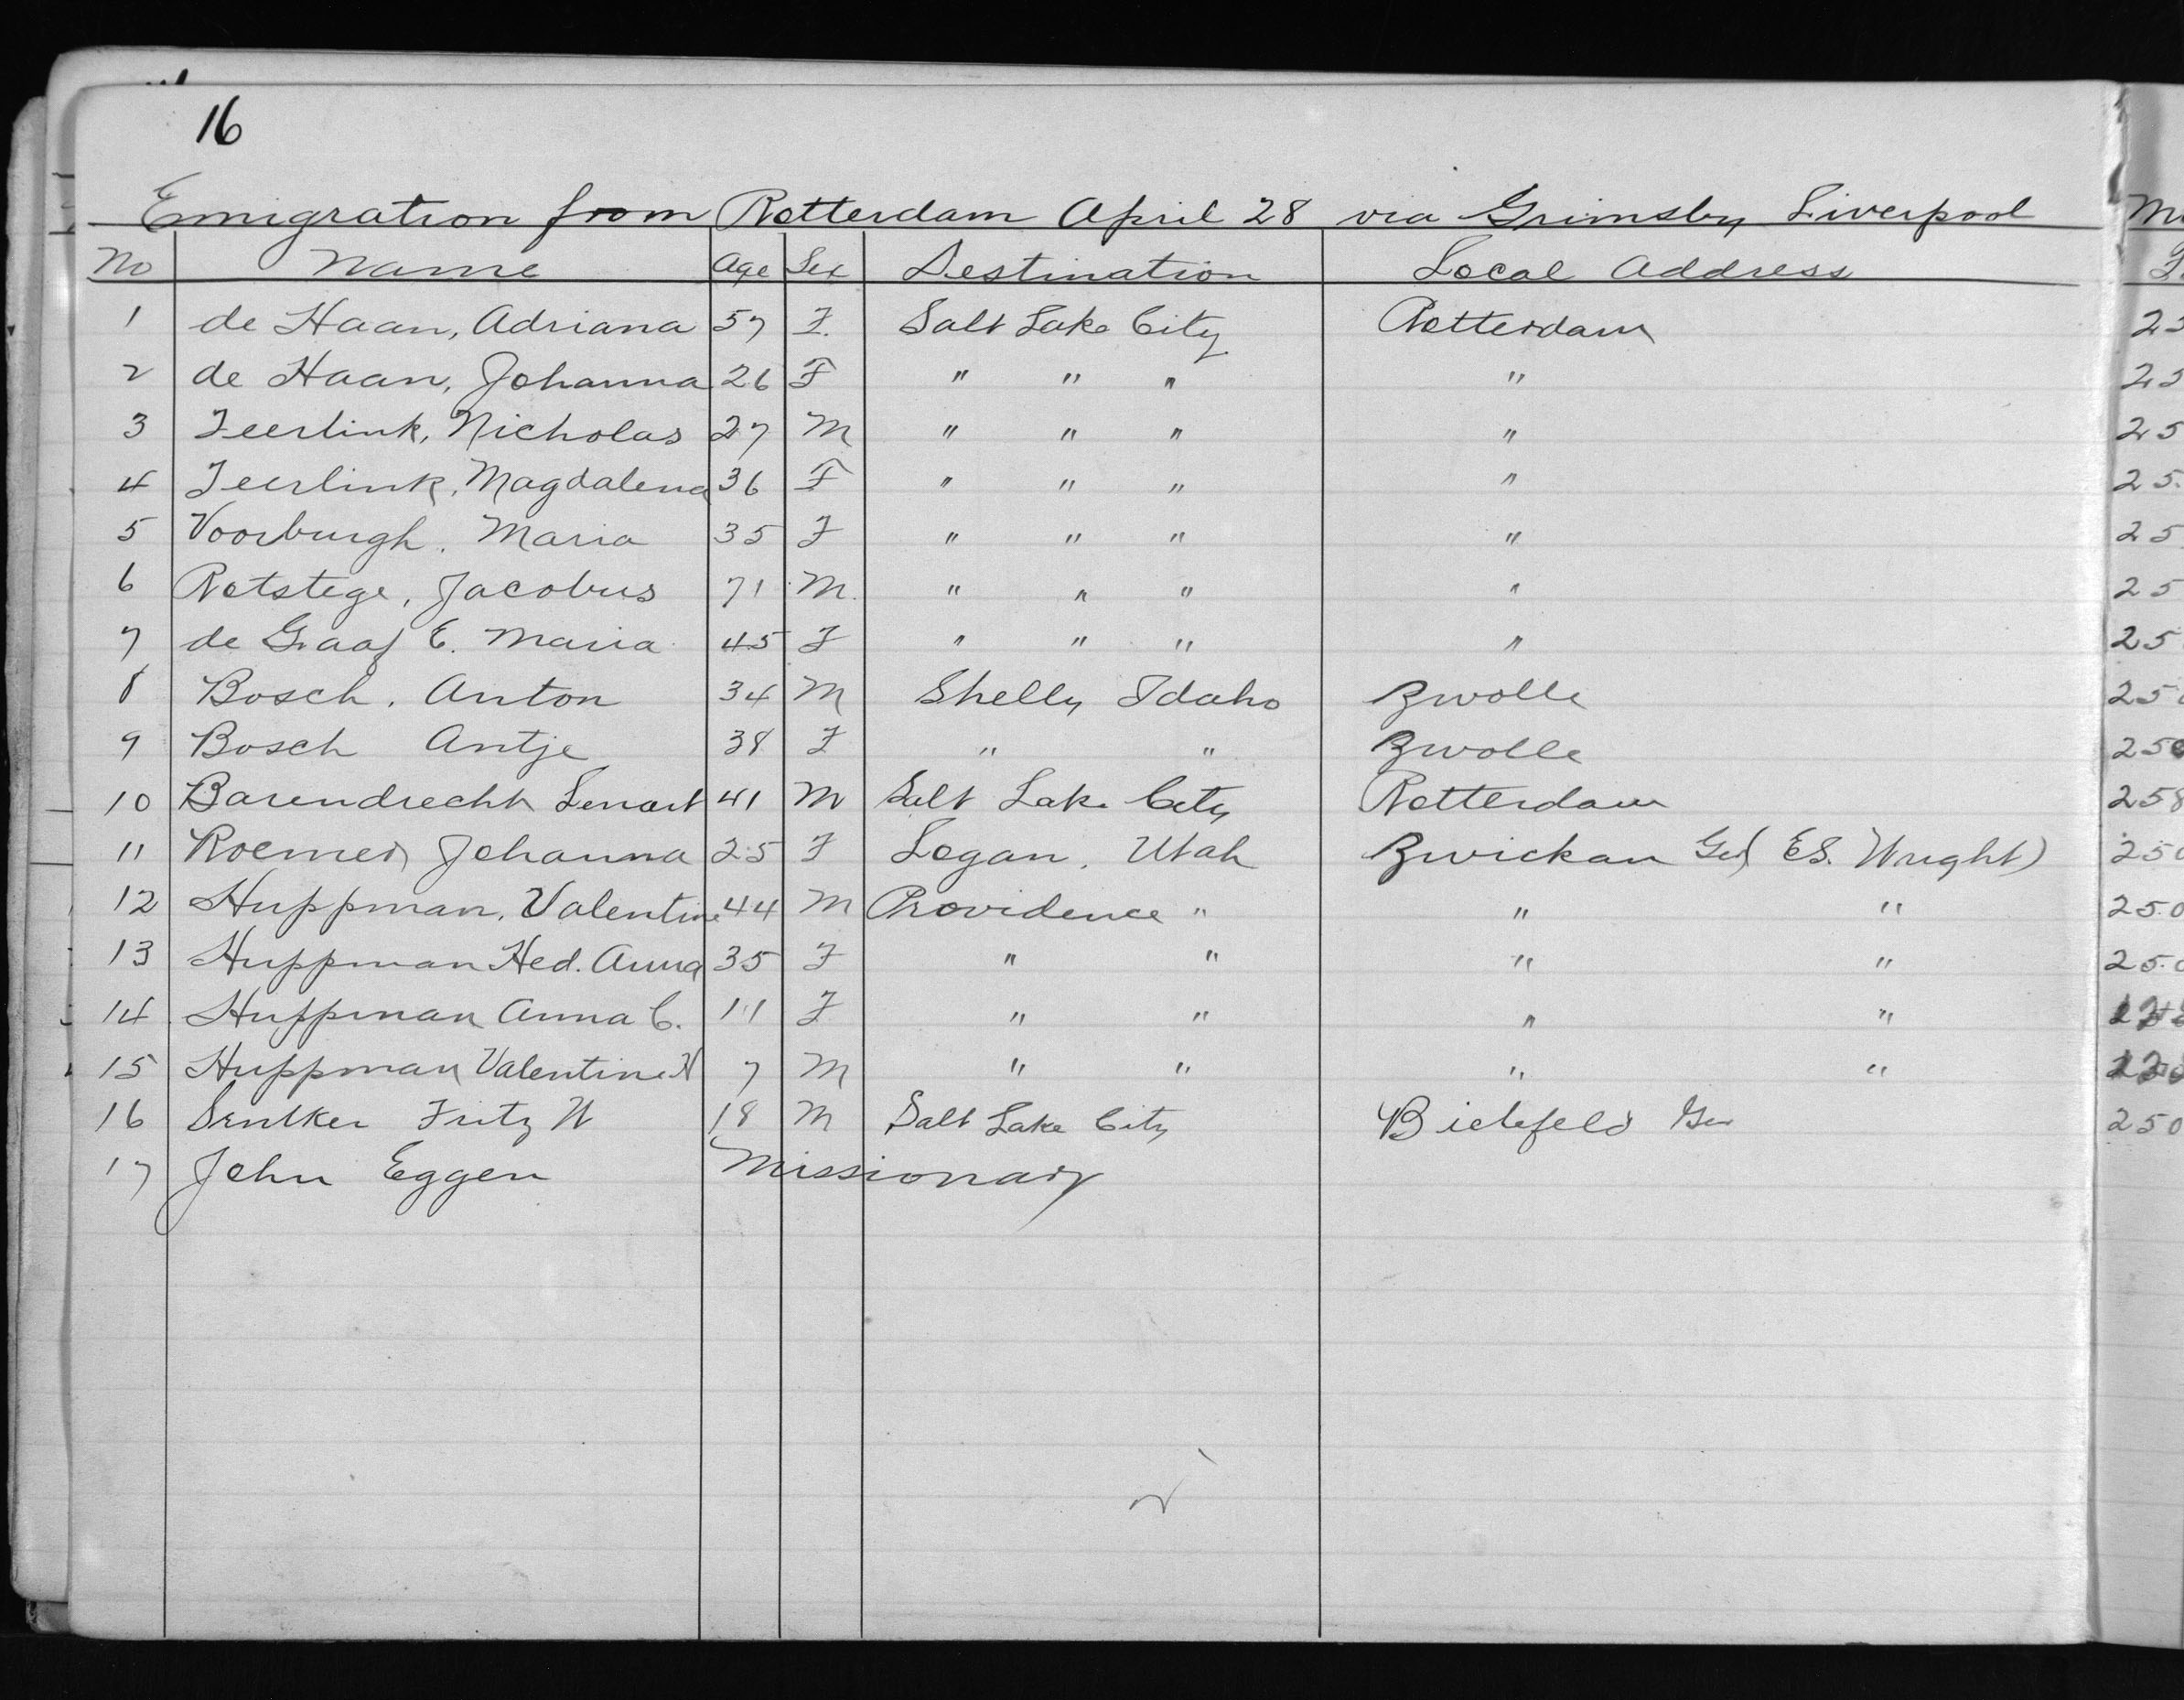 16
Emigration from Rotterdam April 28 via Grimsby Liverpool
No Name Age Sex Destination Local Address
1 de Haan, Adriana 57 F. Salt Lake City Rotterdam
2 de Haan, Johanna 26 F " " " "
3 Teerlink, Nicholas 27 M " " " "
4 Teerlink, Magdalena 36 F " " " "
5 Voorburgh. Maria 35 F " " " "
6 Rotstege, Jacobus 71 M. " " " "
7 de Graaf E. Maria 45 F " " " "
8 Bosch, Anton 34 M Shelly Idaho Zwolle
9 Bosch Antje 38 F " " Zwolle
10 Barendrecht Lenart 41 M Salt Lake City Rotterdam
11 Roemer, Johanna 25 F Logan, Utah Zwickau Ger( ES. Wright)
12 Huppman, Valentine 44 M Providence " " "
13 Huppman Hed. Anna 35 F " " " "
14 Huppman Anna C. 11 F " " " "
15 Huppman Valentine H 7 M " " " "
16 Sentker Fritz W 18 M Salt Lake City Bielefeld Ger
17 John Eggen Missionary